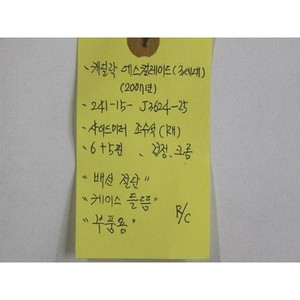 "캐딜락 에스컬레이드 (3세대)
(2007년)
"241-15- J3624-25
"사이드미러 조수석 (RH)
"6+5핀 、검정、크롬
"배선 절단"
"케이스 들뜸"
"부품용" R/C